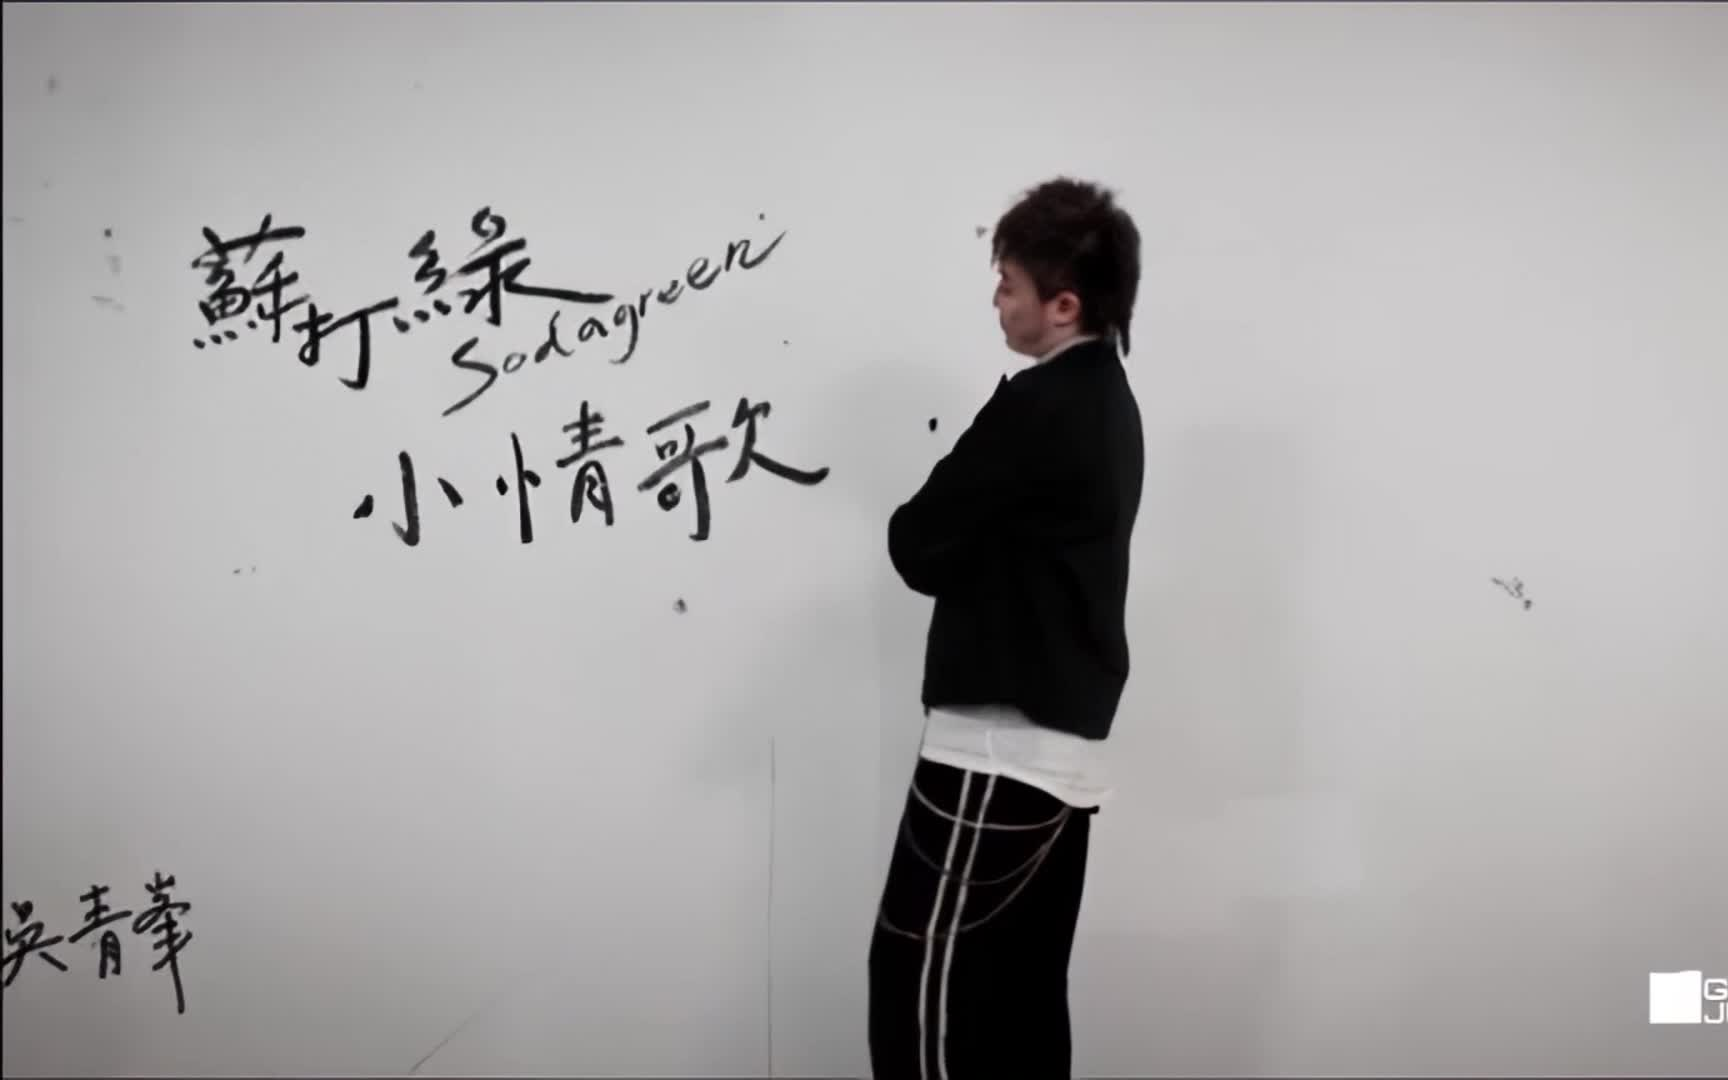 蘇打綠
Sodagreen
小情歌
吳青峯
G